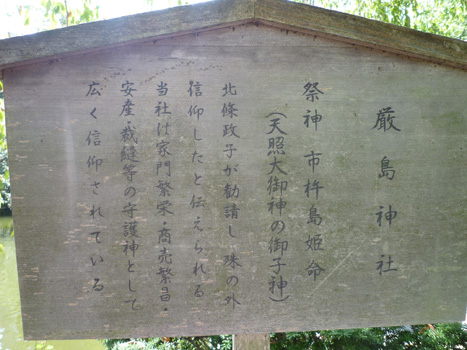 厳島神社
祭神 市杵島姫命
(天照大御神の御子神)
北條政子が勧請し殊の外
信仰したと伝えられる
当社は家門繁栄・商売繁昌・
安産・裁縫等の守護神として
広く信仰されている